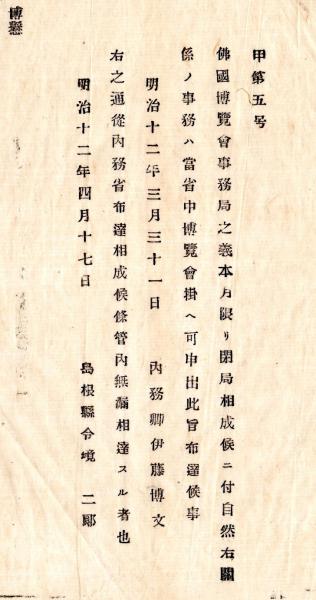 甲第五号
佛國博覽會事務局之義本月限リ閉局相成候ニ付自然右關
係ノ事務ハ當省中博覽會掛ヘ可申出此旨布達候事
明治十二年三月三十一日 內務卿伊藤博文
右之通從內務省布達相成候條管內無漏相達スル者也
明治十二年四月十七日 島根縣令境二郎